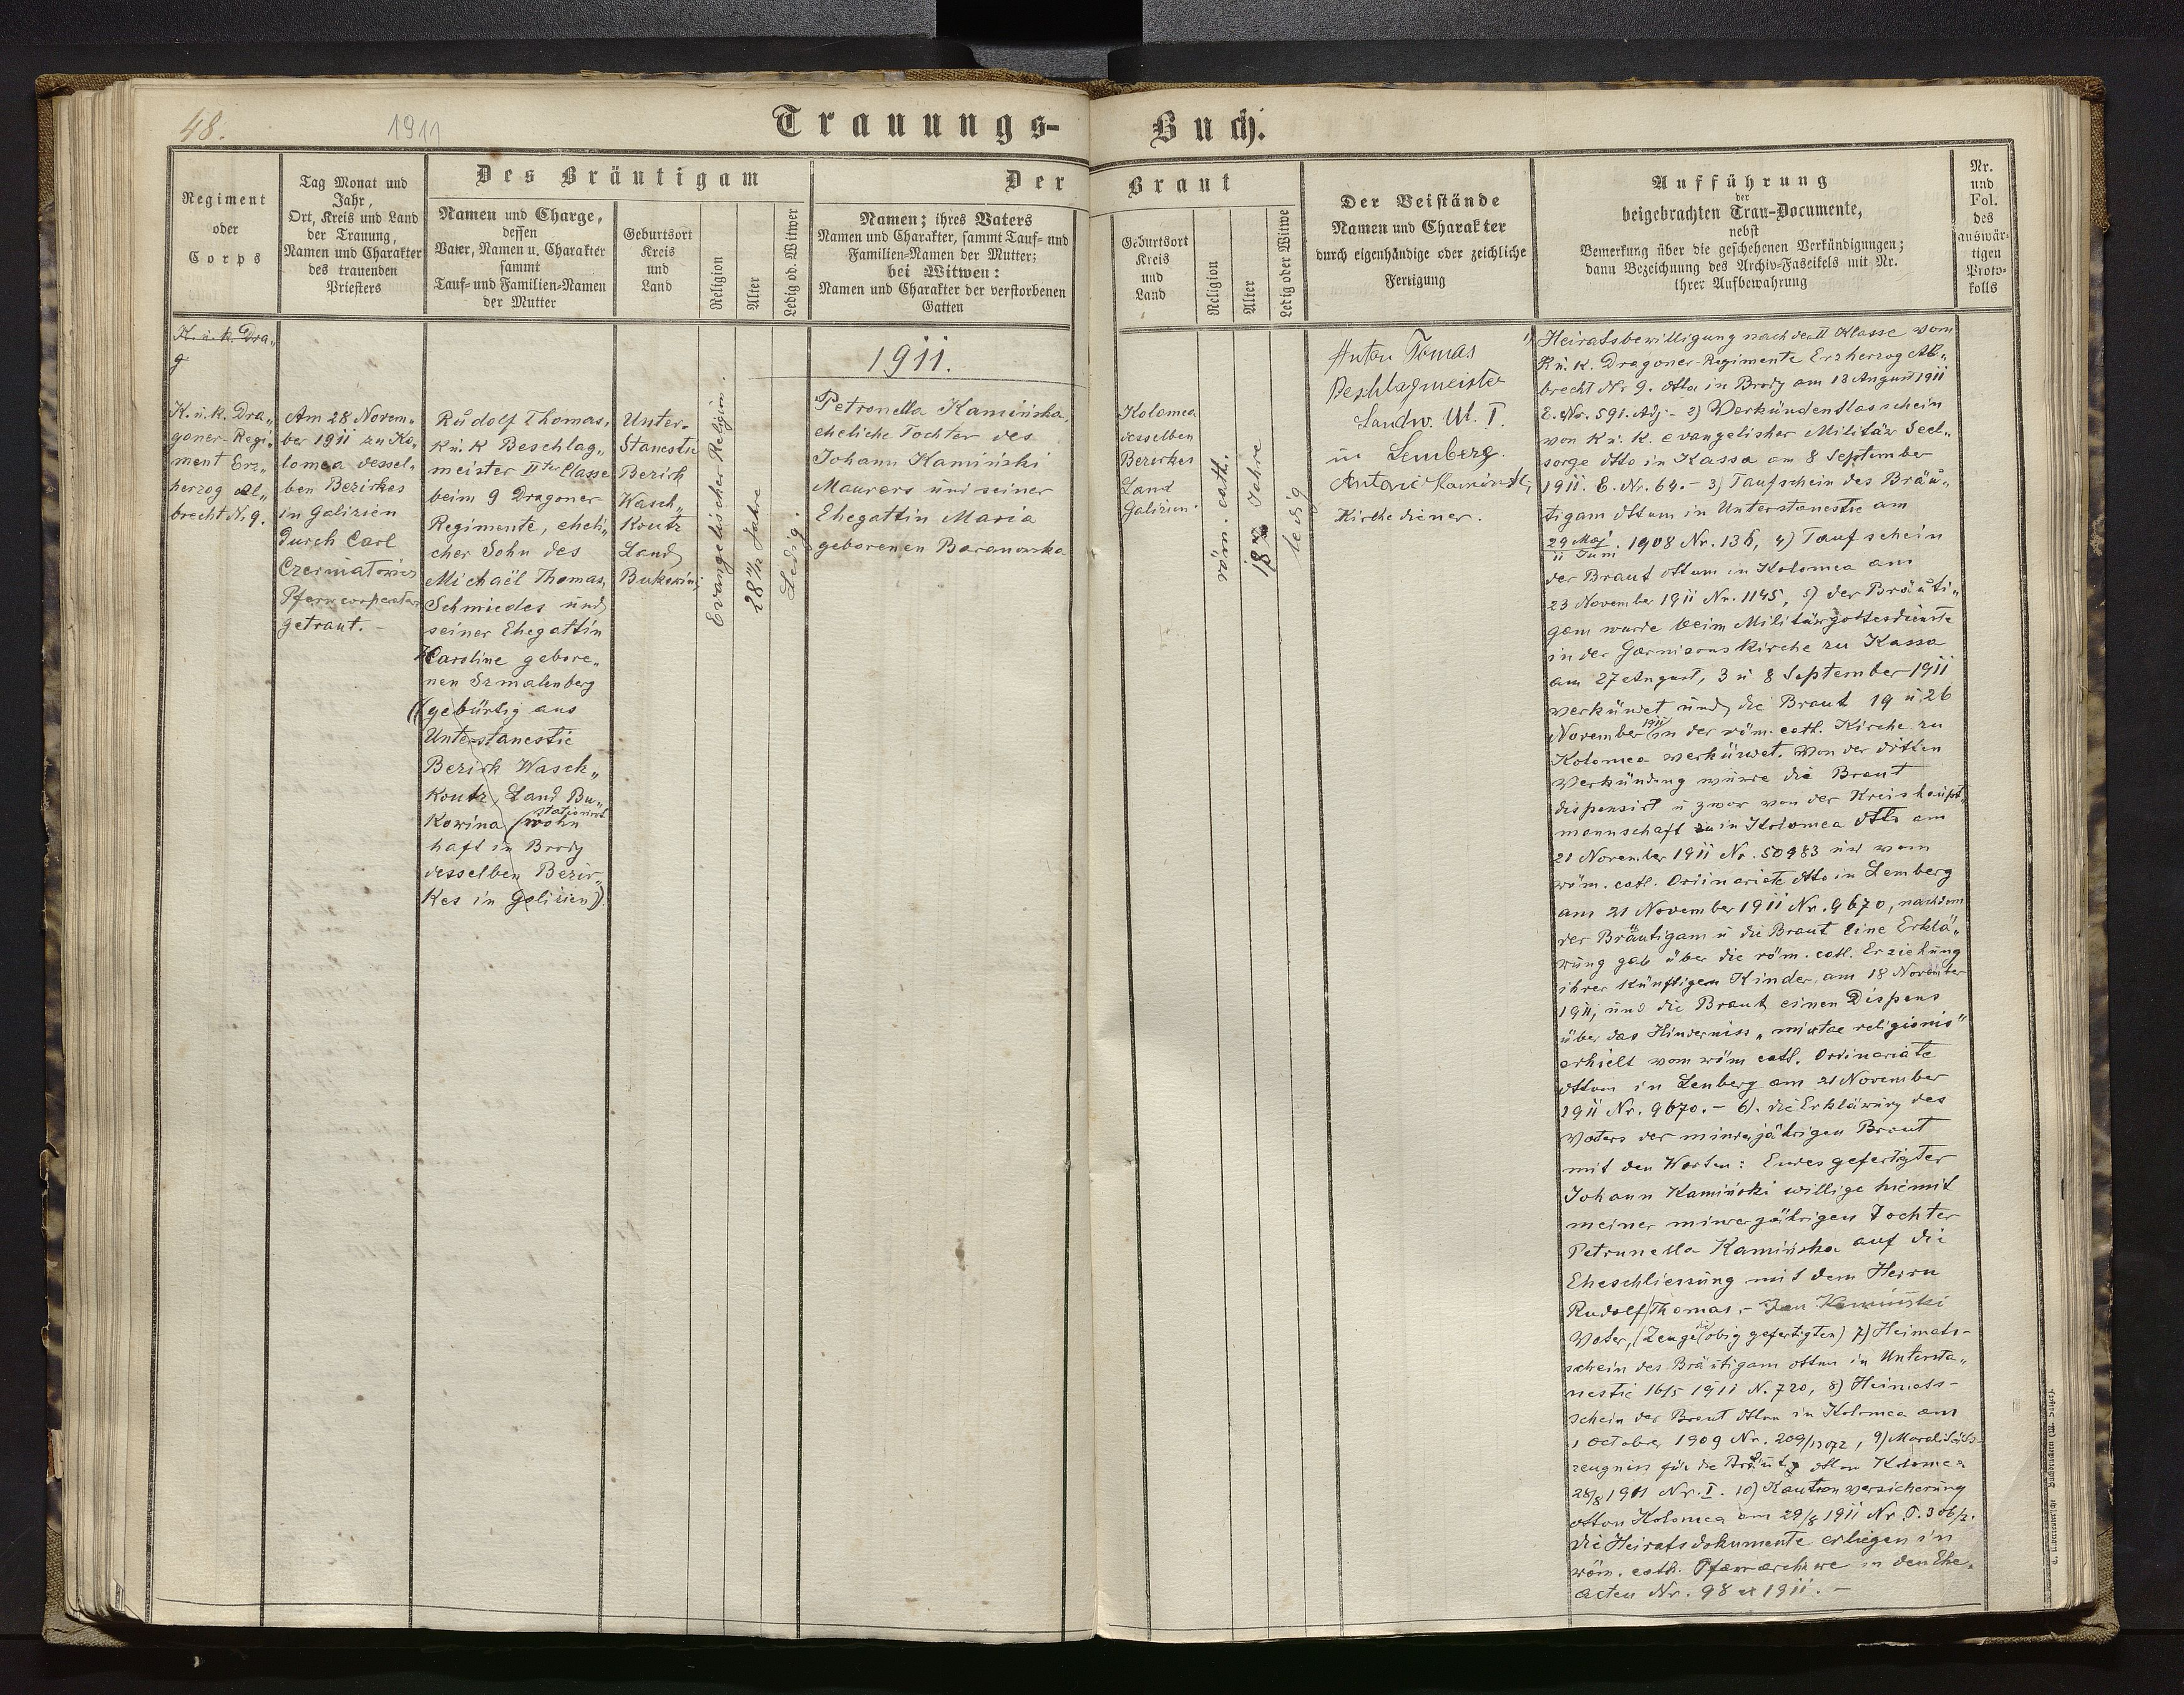 48.
1911
Trauungs-
Buch.
Regiment
oder
Corps
Tag Monat und
Jahr,
Ort, Kreis und Land
der Trauung,
Namen und Charakter
des trauenden
Priesters
Des Bräutigam
Namen und Charge,
dessen
Vater, Namen u. Charakter
sammt
Tauf- und Familien-Namen
der Mutter
Geburtsort
Kreis
und
Land
Religion
Alter
Ledig od. Witwer
Der
Namen; ihres Vaters
Namen und Charakter, sammt Tauf- und
Familien-Namen der Mutter;
bei Witwen:
Namen und Charakter der verstorbenen
Gatten
Braut
Geburtsort
Kreis
und
Land
Religion
Alter
Ledig oder Witwe
Der Beistände
Namen und Charakter
durch eigenhändige oder zeichliche
Fertigung
Aufführung
der
beigebrachten Trau-Documente,
nebst
Bemerkung über die geschehenen Verkündigungen;
dann Bezeichnung des Archiv-Faseikels mit Nr.
ihrer Aufbewahrung
Nr.
und
Fol.
des
auswär-
tigen
Proto-
kolls
K. u. k. Dra„
g
K. u. k. Dra„
goner-Regi„
ment Erz„
herzog Al„
brecht N. 9.
Am 28 Novem„
ber 1911 zu Ko„
lomea dessel„
ben Bezirkes
in Galizien
durch Carl
Czerniatowicz
Pfarrcooperator
getraut. -
Rudolf Thomas,
K u. K Beschlag„
meister IIter Classe
beim 9 Dragoner-
Regimente, eheli„
cher Sohn des
Michaël Thomas,
Schmiedes und
seiner Ehegattin
Karoline gebore„
nen Szmalenberg
((gebürtig aus
Unterstanestie
Bezirk Wasch„
koutz, Land Bu„
kowina (wohn
stationirt
haft in Brody
desselben Bezir„
kes in Galizien)).
Unter-
Stanestie
Bezirk
Wasch„
koutz
Land
Bukowina
Evangelischer Religion.
28 4/12 Jahre
Ledig.
1911.
Petronella Kamińska,
eheliche Tochter des
Johann Kamiński
Maurers und seiner
Ehegattin Maria
geborenen Baranowska
Kolomea
desselben
Bezirkes
Land
Galizien.
röm. cath.
18 Jahre
ledig
Anton Tomas
Beschlagmeister
Landw. Ul. I.
in Lemberg.
Antoni Kamiński
Kirchediener.
1) Heiratsbewilligung nach der II Klasse vom
K u. K. Dragoner-Regimente Erzherzog Al„
brecht Nr 9. dtto in Brody am 13 August 1911
E. Nr. 591. Adj - 2) Verkündentlasschein
von K u. K. evangelisher Militär Seel„
sorge dtto in Kassa am 8 September
1911. E. Nr. 64. - 3) Taufschein des Bräu„
tigam dttum in Unterstanestie am
29 Maj
11 Juni 1908 Nr. 136, 4) Taufschein
der Braut dttum in Kolomea am
23 November 1911 Nr. 1145, 5) der Bräuti„
gam wurde beim Militärgottesdienste
in der Garnisonskirche zu Kassa
am 27 August, 3 u 8 September 1911
verkündet und die Braut 19 u 26
November 1911 in der röm. cath. Kirche zu
Kolomea verkündet. Von der dritten
Verkündung wurde die Braut
dispensirt u zwar von der Kreishaupt„
mannschaft in Kolomea dtto am
21 November 1911 Nr. 50983 und vom
röm. cath. Ordinariate dtto in Lemberg
am 21 November 1911 Nr. 9670, nachdem
der Bräutigam u die Braut eine Erklä„
rung gab über die röm. cath. Erziehung
ihrer künftigen Kinder am 18 November
1911, und die Braut einen Dispens
über das Hinderniss „mixtae religionis"
erhielt vom röm cath. Ordinariate
dttum in Lemberg am 21 November
1911 Nr. 9670. - 6). die Erklärung des
Vaters der minderjährigen Braut
mit den Worten: Endesgefertigter
Johann Kamiński willige hiemit
meiner minderjährigen Tochter
Petrunella Kamińska auf die
Eheschliessung mit dem Herrn
Rudolf Thomas. - Jan Kamiński
Vater, (Zeuge die obig gefertigten) 7) Heimats-
schein des Bräutigam dttum in Untersta„
nestie 16/5 1911 N. 720, 8) Heimats-
schein der Braut dttum in Kolomea am
1 October 1909 Nr. 209/13072, 9) Moralitäts-
zeugniss für die Bräutig dttum Kolomea
28/8 1911 Nr. I. 10) Kaution versicherung
dttum Kolomea am 29/8 1911 Nr P. 306/2.
Die Heiratsdokumente erliegen in
röm. cath. Pfarrarchive in den Ehe„
acten Nr. 98 ex 1911. -